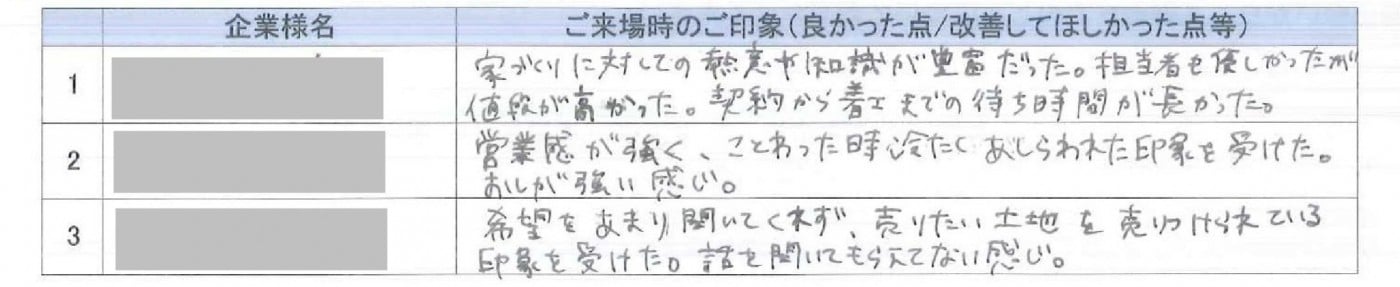 企業様名 ご来場時のご印象(良かった点/改善してほしかった点等)
1 家づくりに対しての熱意や知識が豊富だった。担当者も優しかったが
値段が高かった。契約から着工までの待ち時間が長かった。
2 営業感が強く、ことわった時冷たくあしらわれた印象を受けた。
おしが強い感じ。
3 希望をあまり聞いてくれず、売りたい土地を売りつけられている
印象を受けた。話を聞いてもらえてない感じ。